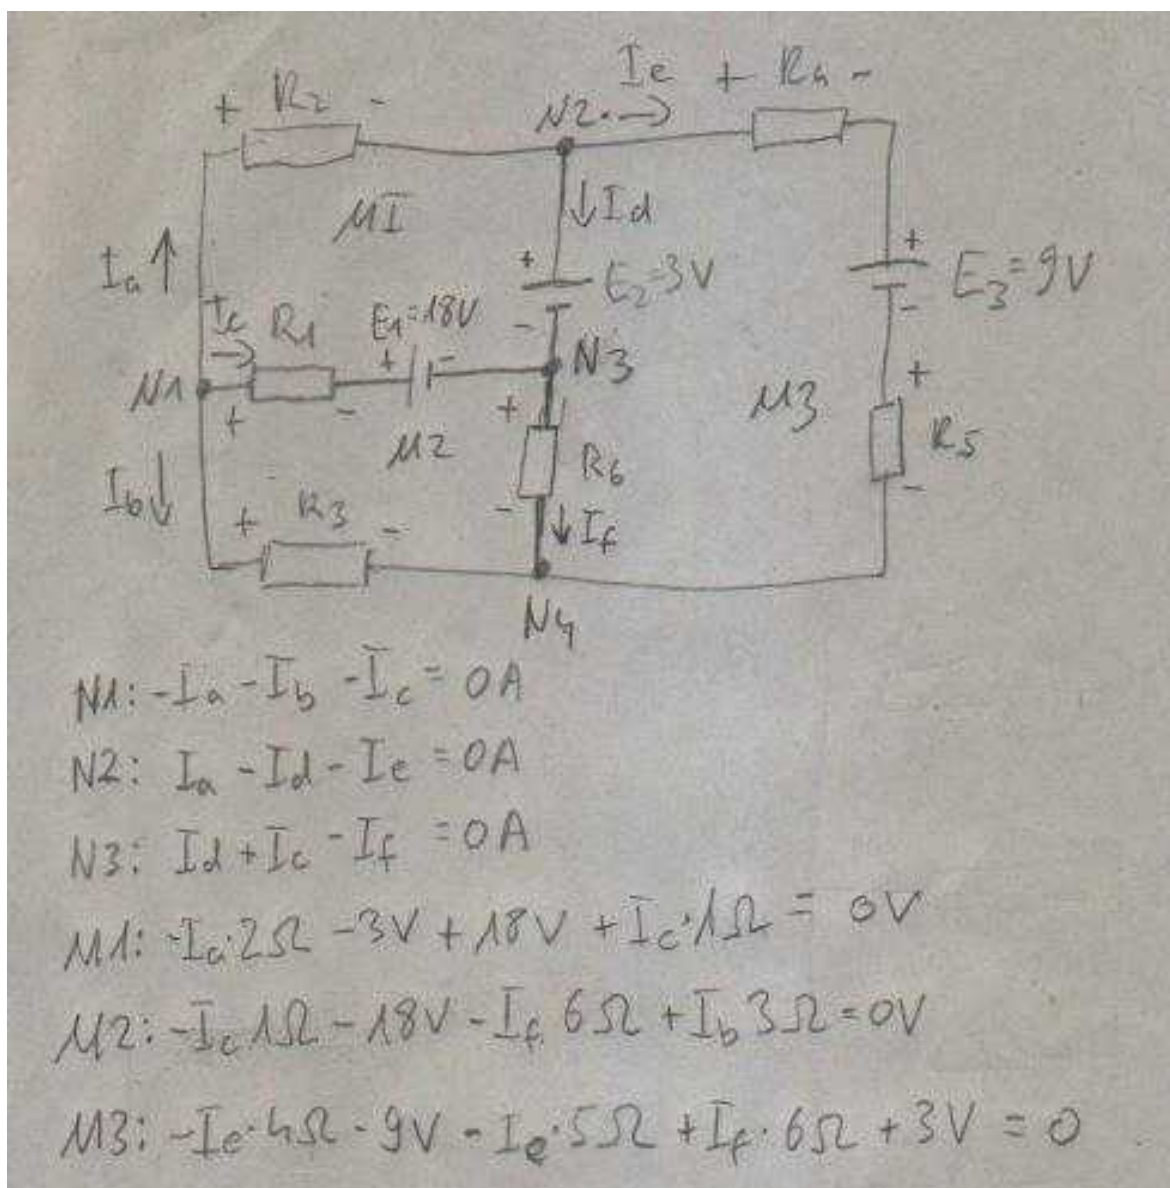 + R2 -
Ie + R4 -
N2
MI
↓Id
Ia↑
+
E2=3V
-
+
E3=9V
-
Ic
→
R1
E1=18V
+ -
N3
N1
+ -
M2
M3
+
R6
-
+
R5
-
Ib↓
+ R3 -
↓If
N4
N1: -Ia -Ib -Ic = 0A
N2: Ia -Id -Ie = 0A
N3: Id + Ic - If = 0A
M1: -Ia·2Ω -3V + 18V + Ic·1Ω = 0V
M2: -Ic 1Ω - 18V - If 6Ω + Ib 3Ω = 0V
M3: -Ie·4Ω - 9V - Ie·5Ω + If·6Ω + 3V = 0